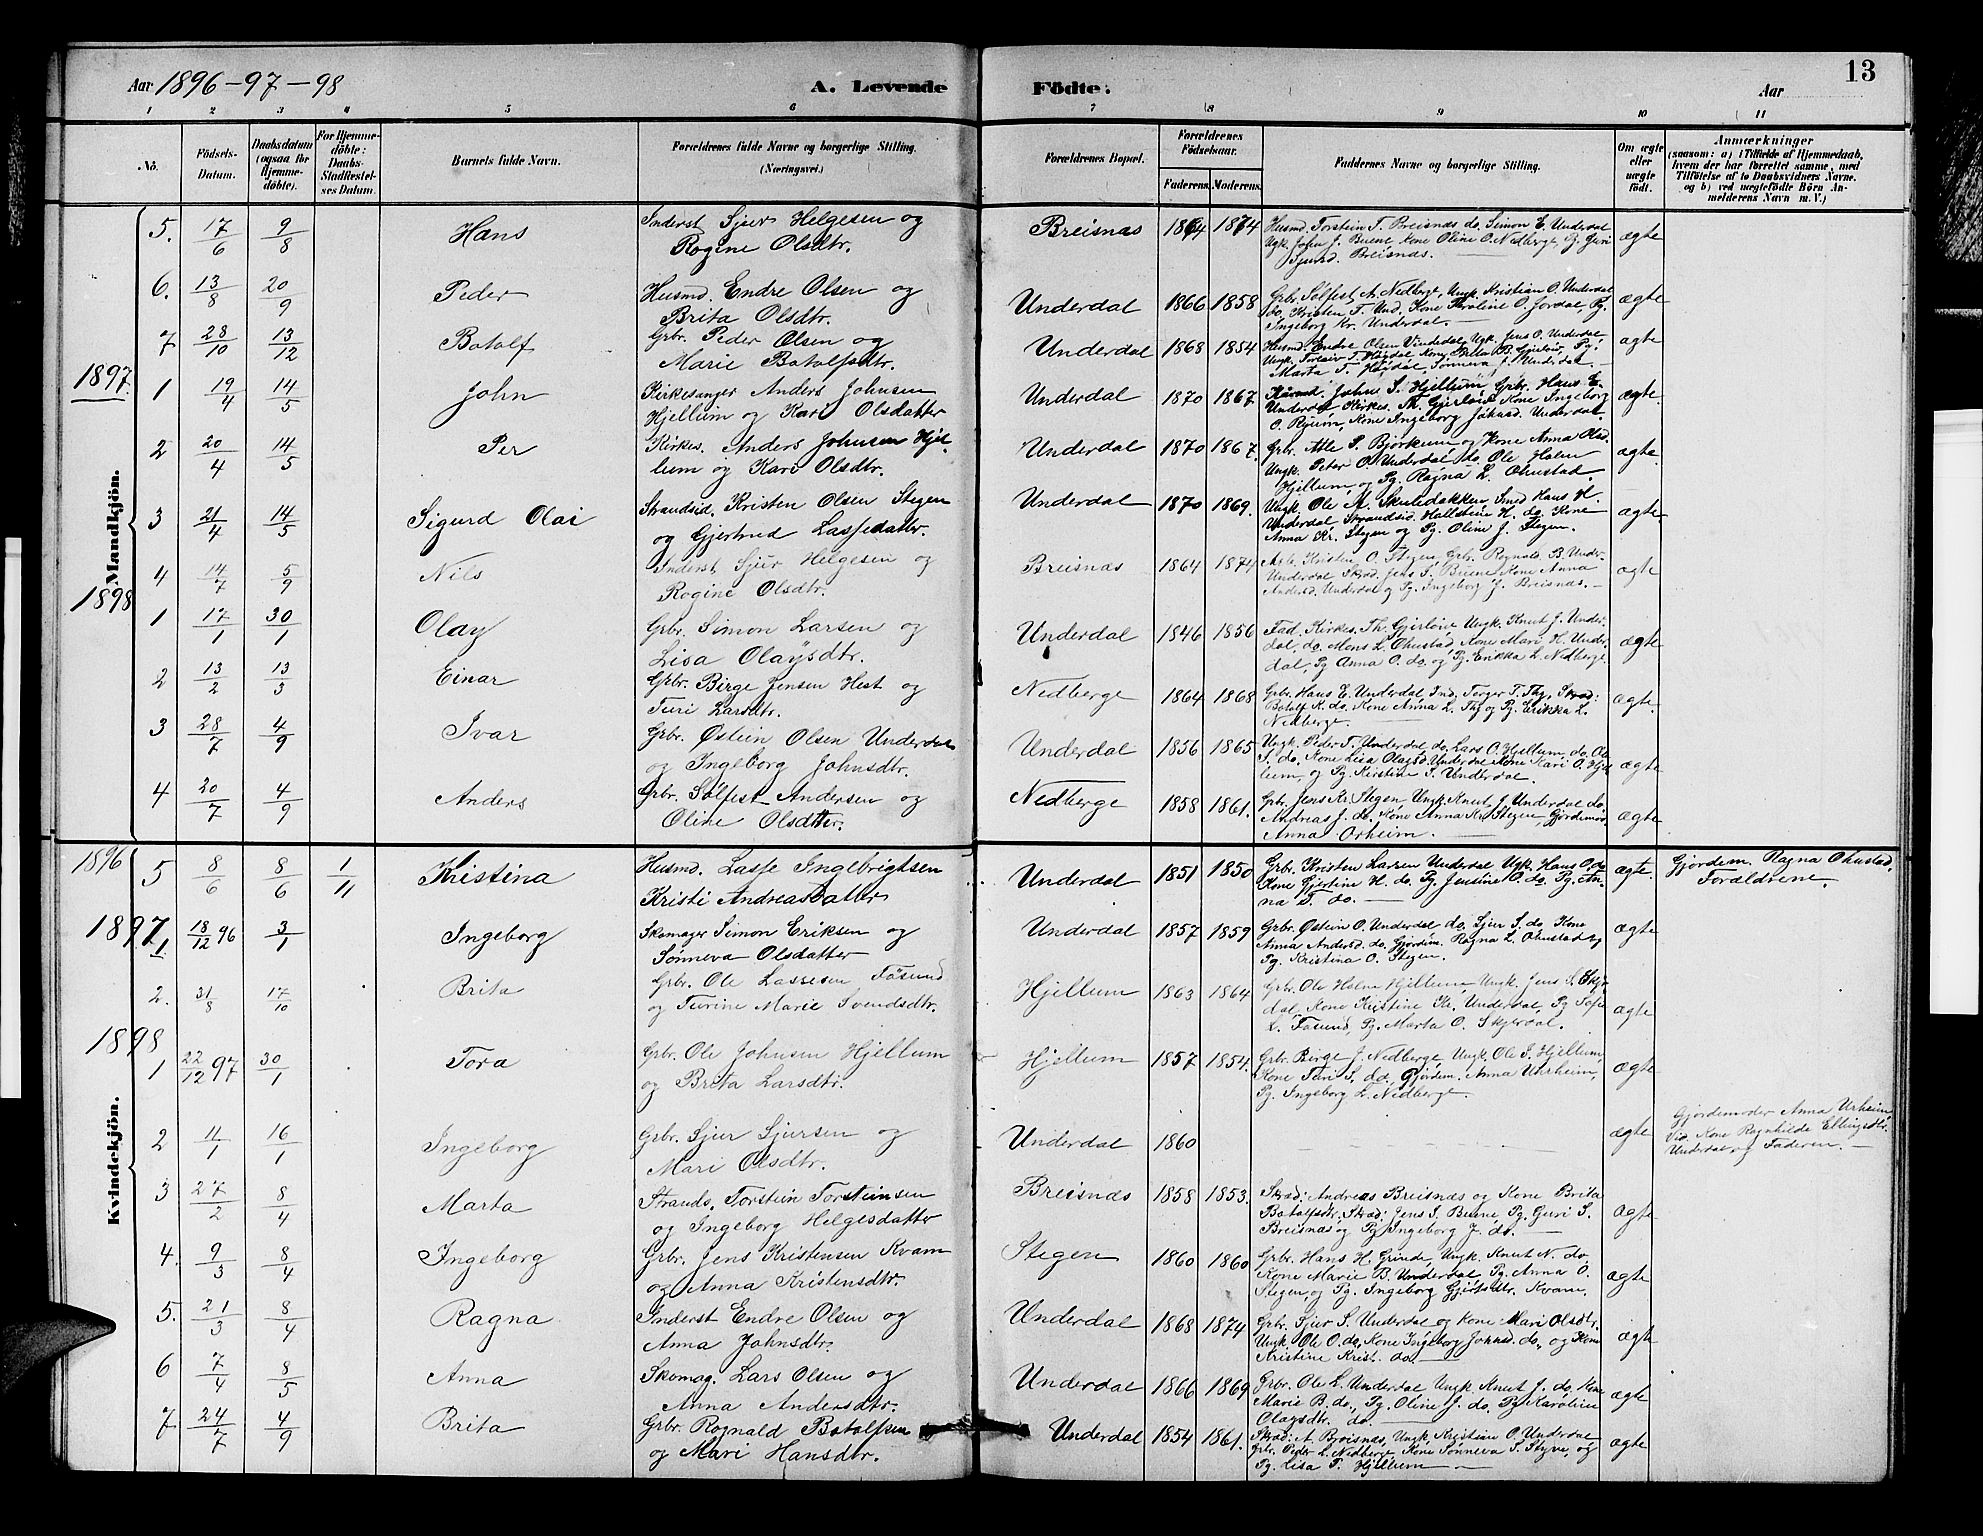 Aar 1896-97-98
A. Levende
Födte.
Aar
13
1 2 3 4 5 6 7 8 9 10 11
No.
Födsels-Datum.
Daabsdatum (ogsaa for Hjemmedöbte).
For Hjemmedöbte: Daabs-Stadfæstelses Datum.
Barnets fulde Navn.
Forældrenes fulde Navne og borgerlige Stilling. (Næringsvei.)
Forældrenes Bopæl.
Forældrenes Födselsaar.
Faderens. Moderens.
Faddernes Navne og borgerlige Stilling.
Om ægte eller uægte födt.
Anmærkninger
(saasom: a) i Tilfælde af Hjemmedaab, hvem der har forrettet samme, med Tilföielse af to Daabsvidners Navne. og b) ved uægtefödte Börn Anmelderens Navn m. V.)
Mandkjön.
5. 17/6 9/8 Hans Inderst Sjur Helgesen og
Rogine Olsdtr. Breisnas 1864 1874 Husmd. Torstein T. Breisnas do. Simon E. Underdal
Ungk. John J. Buene, Kone Oline O. Nedberge, Pg. Guri
Sjursd. Breisnas. ægte
6. 13/8 20/9 Peder Husmd. Endre Olsen og
Brita Olsdtr. Underdal 1866 1858 Grbr. Solfest A. Nedberge, Ungk. Kristian O. Underdal
do. Kristen T. Und. Kone Karoline O. Jordal, Pg.
Ingeborg Kr. Underdal. ægte
7 28/10 13/12 Botolf Grbr. Peder Olsen og
Marie Botolfsdtr. Underdal 1868 1854 Husmd. Endre Olsen Underdal, Ungk. Jens O. Underdal
Marta T. Underdal. ægte
1897.
1 19/4 14/5 John Kirkesanger Anders Johnsen
Hjellum og Kari Olsdatter Underdal 1870 1867. Kårmd. John S. Hjellum, Grbr. Hans E.
Underdal Kirkes. Th. Gjerløw Kone Ingeborg
O. Ryum, Kone Ingeborg Johnsd. Underdal. ægte.
2 20/4 14/5 Per Kirkes. Anders Johnsen Hjel-
lum og Kari Olsdtr. Underdal 1870 1867. Grbr. Atle S. Bjørkum og Kone Anna Olsd.
Ungk. Peter O. Underdal, do. Ole Holm
Hjellum, og Pg. Ragna L. Ohnstad. ægte.
3 21/4 14/5 Sigurd Olai Strandsid. Kristen Olsen Stegen
og Gjertrud Lassedatter. Underdal 1870 1869. Ungk. Ole A. Skulebakken, Smed Hans H.
Underdal Strandsid. Hallstein H. do. Kone
Anna Kr. Stegen og Pg. Oline J. Stegen. ægte.
4 14/7 5/9 Nils Inderst. Sjur Helgesen og
Rogine Olsdtr. Breisnas 1864 1874 Kristen O. Stegen, Grbr. Rognald B. Under-
dal Skrad. Jens S. Buene Kone Anna
Andersd. Underdal og Pg. Ingeborg J. Breisnas. ægte
1898
1 17/1 30/1 Olay Grbr. Simon Larsen og
Lisa Olaysdtr. Underdal 1846 1856 Fad. Kirkes. Th. Gjerløw Ungk. Knut J. Under-
dal, do. Mons L. Ohnstad, Kone Mari H. Under-
dal, Pg Anna O. do. og Pg. Erikka L. Nedberge. ægte
2 13/2 13/3 Einar Grbr. Birge Jensen Hest og
Turi Larsdtr. Nedberge 1864 1868 Grbr. Hans E. Underdal, Ind. Torger T. Thy, Skrad:
Botolf K. do. Kone Anna L. Thy og Pg. Erikka L.
Nedberge. ægte.
3 28/7 4/9 Ivar Grbr. Østein Olsen Underdal
og Ingeborg Johnsdtr. Underdal 1856 1865 Ungk. Peder T. Underdal do. Lars O. Hjellum, do. Ole
S. do. Kone Lisa Olaysd Underdal Kone Kari O. Hjel-
lum, og Pg. Kristine S. Underdal. ægte
4 20/7 4/9 Anders Grbr. Solfest Andersen og
Oline Olsdtter. Nedberge 1858 1861. Grbr. Jens Kr. Stegen, Ungk. Knut J. Underdal do.
Andreas J. do. Kone Anna Kr. Stegen, Gjordemor
Anna Orheim. ægte
Kvindekjön.
1896
5 8/6 8/6 1/11 Kristina Husmd. Lasse Ingebrigtsen
Kristi Andreasdatter Underdal 1851 1850 Grbr. Kristen Larsen Underdal Ugk. Hans O. do
Kone Gjertine H. do. Pg. Justine O. do. Pg. An-
na T. do. ægte. Gjordem. Ragna Ohnstad,
Forældrene.
1897
1. 18/12 96 3/1 Ingeborg Skomager Simon Eriksen og
Sønneva Olsdatter Underdal 1857 1859 Grbr. Østein O. Underdal do. Sjur S. do Kone
Anna Andersd. do. Gjordem. Ragna L. Ohnstad og
Pg. Kristina O. Stegen. ægte
2. 31/8 17/10 Brita Grbr. Ole Lassesen Fosund
og Turine Marie Svendsdtr. Hjellum 1863 1864 Grbr. Ole Holm Hjellum Ungk. Jens S. Skjer-
dal, Kone Kristine Kr. Underdal, Pg Sofie
L. Fosund, Pg. Marta O. Skjerdal. ægte
1898
1 22/12 97 30/1 Tora Grbr. Ole Johnsen Hjellum
og Brita Larsdtr. Hjellum 1857 1854. Grbr. Birge J. Nedberge, Ungk. Ole S. Hjellum,
Kone Turi S. do., Gjordem. Anna Uhrheim,
Pg. Ingeborg L. Nedberge. ægte
2 11/1 16/1 Ingeborg Grbr. Sjur Sjursen og
Mari Olsdtr. Underdal 1860 ægte Gjordemoder Anna Urheim
Vid. Kone Ragnhilde Ellingsdtr.
Underdal og Faderen.
3 27/2 8/4 Marta Strands. Torstein Torsteinsen
og Ingeborg Helgesdatter Breisnas 1858 1853. Skrad: Andreas Breisnas og Kone Brita
Botolfsdtr. Skrad: Jens S. Buene Pg. Guri S.
Breisnas og Pg. Ingeborg J. do. ægte
4. 9/3 8/4 Ingeborg Grbr. Jens Kristensen Kvam
og Anna Kristensdtr. Stegen 1860 1860 Grbr. Hans H. Grinde, Ungk. Knut N. do.
Kone Marie B. Underdal, Pg. Anna O.
Stegen, og Pg. Ingeborg Gjertsdtr. Kvam. ægte
5. 21/3 8/4 Ragna Inderst Endre Olsen og
Anna Johnsdtr. Underdal 1868 1874 Grbr. Sjur S. Underdal og kone Mari Olsdtr.
Ungk. Ole O. do. Kone Ingeborg Johnsd. do., og Kone
Kristine Krist. do. ægte
6 7/4 8/5 Anna Skomag. Lars Olsen og
Anna Andersdtr. Underdal 1866 1869 Grbr. Ole L. Underdal Ungk. Knut J. do. Kone
Marie B. do., Pg. Oline J. do. Pg Karoline
Olaysdtr. do. ægte
7 24/7 4/9 Brita Grbr. Rognald Botolfsen
og Mari Hansdtr. Underdal 1854 1861. Skrad: A. Breisnas, Ungk. Kristian O. Underdal
Grbr. Peder L. Nedberge, Kone Sønneva S. Styve, og
Pg. Lisa P. Hjellum ægte